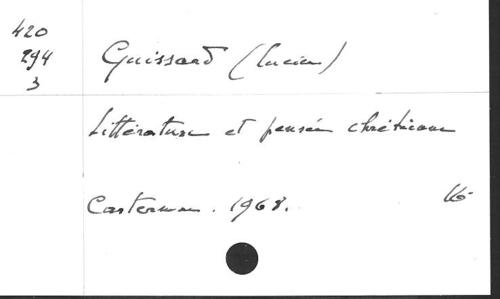 420
294
3
Guissard (Lucien)
Littérature et pensée chrétienne
Casterman. 1968.